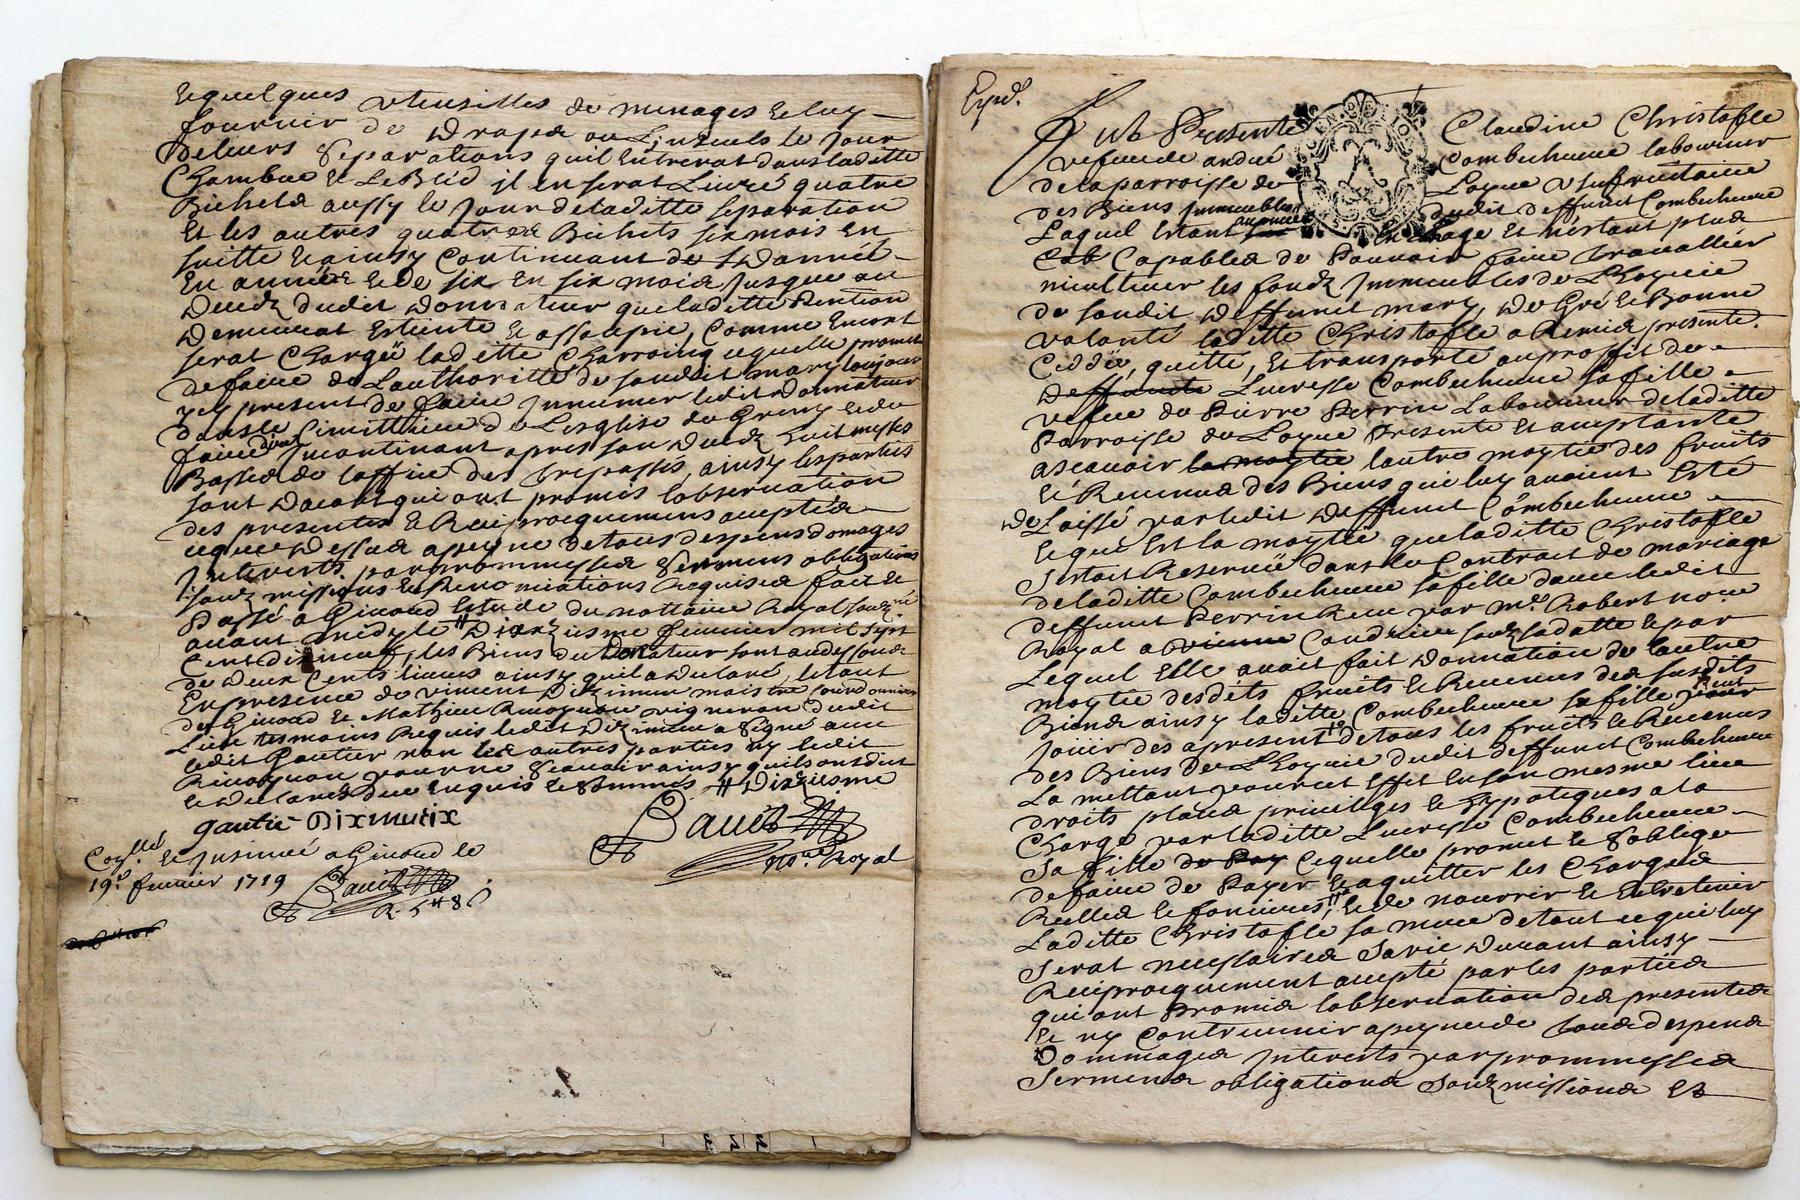 Et quelques utensilles de menages Et luy
fournir de Draps ou Linsuels le jour
de leurs separations quil Entrerat dans laditte
Chambre Et Le Bled il en serat Livré quatre
Bichets aussy le jour de laditte separation
Et les autres quatres Bichets six mois en
suitte Et ainsy Continuant de
En année Et De six En six mois jusque au
Decedz dudit Donnateur que laditte Pention
Demeurat Esteinte Et assoupie, Comme Encore
serat Chargeë laditte Charroing laquelle promet
de faire de Lauthoritté de sondit mary
ycy present de faire Innumer ledit Donnateur
dans le Cimittiere de Lesglise de Et de
faire dire Incontinant apres son Decedz huit messes
Basses de loffice des trepassés, ainsy les parties
sont Dacort qui ont promis lobservation
des presentes Et Reciprocquement acceptés
ce que Dessus a peyne de tous despens domages
Interests par prommesses sermens obligations
soubz missions Et Renonciations Requises fait Et
Passé a Givord Estude du nottaire Royal soubzné
avant midy le # Dixziesme feuvrier mil sept
Cent dix neuf, les Biens du Donateur sont audessoubz
de Deux Cents livres ainsy quil a Declaré, le tout
En presence de Dizimieu maistre Courdonnier
de Givord Et Mathieu vigneron dudit
Lieu tesmoins Requis ledit Dizimieu a signé avec
ledit Gautier non les autres parties ny ledit
pour ne Sçavoir ainsy quils ont dit
Et Declaré de ce Enquis Et Sommés # Dixziesme
gautié Dixmieux
no.re Royal
Con.llé Et Insinué a Givord le
19.e feuvrier 1719
R. 5# 8s
Exped.
Fut Presente Claudine Christofle
vefue de andré Combecheure laboureur
de la parroisse de Loyre usufruitaire
des Biens Immeubles dudit deffunct Combecheure
Laquel Estant avancée En Eage Et n'estant plus
Capables de Pouvoir faire travallier
ni cultiver les fondz Immeubles de L'hoyrie
de sondit deffunct mary, De Gré Et Bonne
volonté laditte Christofle a Remis presente.
Ceddée, quitté, Et transporté au proffit de
Deffuncte Lucresse Combecheure sa fille
vefue de Pierre Perrin Laboureur de laditte
Parroisse de Loyre Presente Et acceptante
a scavoir la moytie lautre moytie des fruits
Et Revenus des Biens qui luy avoient Esté
De Laissé par ledit deffunct Combecheure
Ce que Est la moytie que laditte Christofle
Sestoit Reserveë dans le Contrait de mariage
de laditte Combecheure sa fille avec ledit
deffunct Perrin Receu par M.e Robert no.re
Royal a vienne Condrieu soubz sa datte Et par
Lequel Elle avait fait Donnation de lautre
moytie desdits fruits Et Revenus des susdits
Biens ainsy laditte Combecheure sa fille
Jouir des a present de tous les fruits Et Revenus
des Biens De L'hoyrie dudit deffunct Combecheure
La mettant pour cet Effet En son mesme lieu
droits place privileges Et hypoteques a la
Charge par laditte Lucresse Combecheure
Sa fille de Pay Laquelle promet Et soblige
de faire de Payer Et aquitter les Charges
Reelles Et foncieres, Et de nourrir Et Entretenir
Laditte Christofle sa mere de tout ce qui luy
Serat necessaires sa vie Durant ainsy
Reciprocquement accepté par les parties
qui ont Promis lobservation des presentes
Et ny Contrevenir a peyne de tous despens
Dommages Interests par prommesses
Sermens obligations Soubzmissions Et